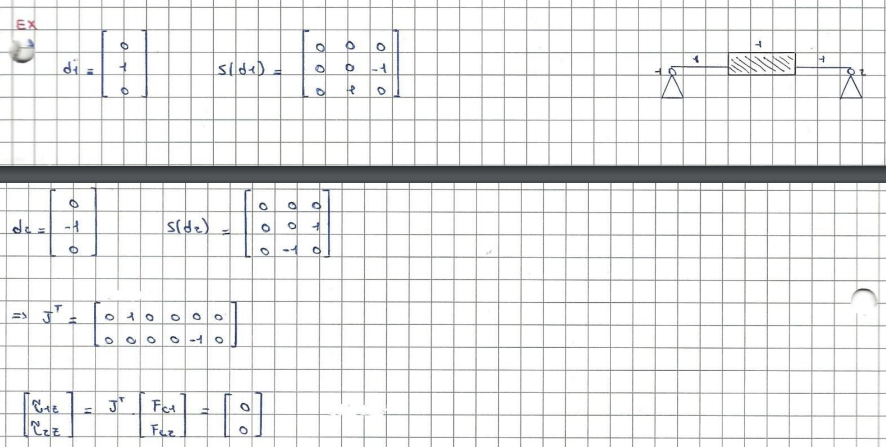 EX
d1 = [0 1 0] S(d1) = [0 0 0; 0 0 -1; 0 1 0] 1 1 1 1 2
d2 = [0 -1 0] S(d2) = [0 0 0; 0 0 1; 0 -1 0]
=> J^T = [0 1 0 0 0 0; 0 0 0 0 -1 0]
[τ1z; τ2z] = J^T · [Fc1; Fc2] = [0; 0]